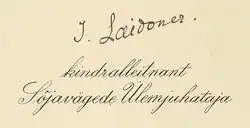 J. Laidoner.
kindralleitnant
Sõjavägede Ülemjuhataja